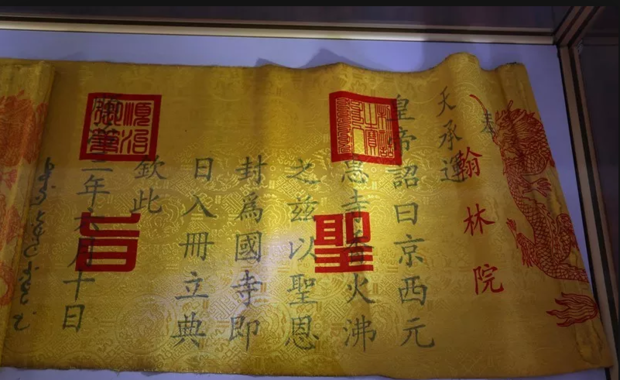 奉
翰林院
天承運
皇帝詔曰京西元
息寺香火沸
聖
之茲以聖恩
封為國寺即
日入冊立典
欽此
順治御筆
年六月十日
旨